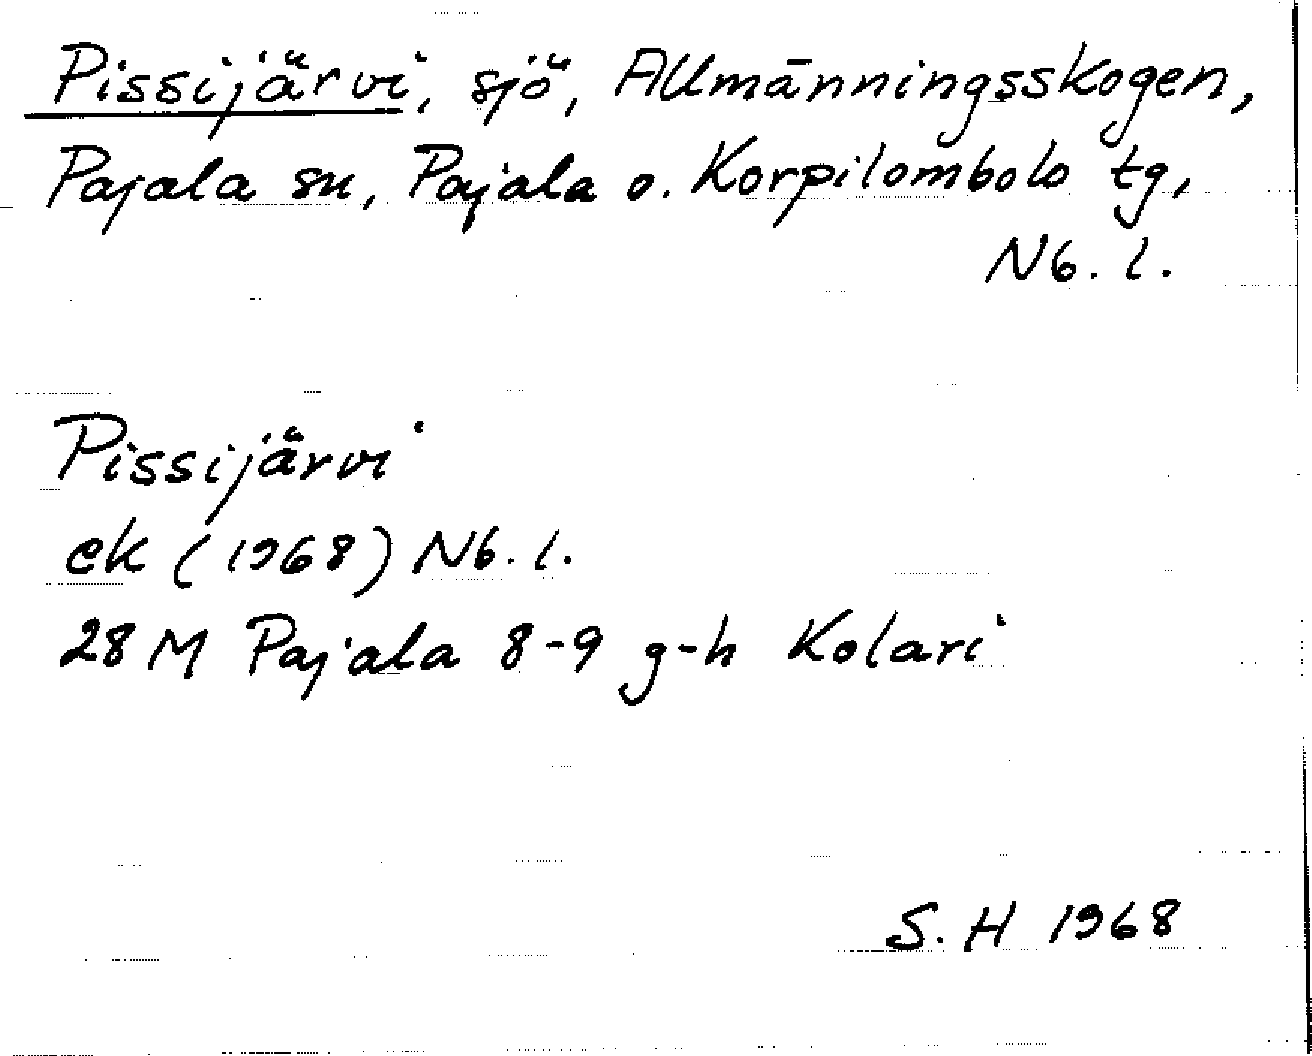 Pissijärvi, sjö, Allmänningsskogen,
Pajala sn, Pajala o. Korpilombolo tg,
Nb. l.
Pissijärvi
ek (1968) Nb. l.
28 M Pajala 8-9 g-h Kolari
S. H 1968